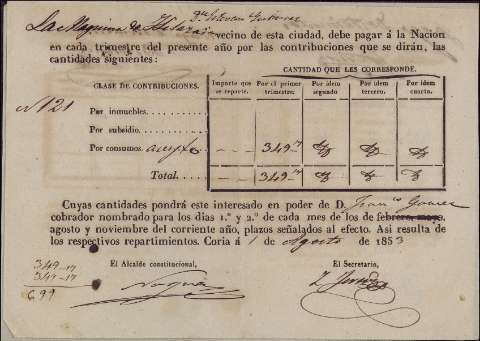 Dn. Esteban Gutierrez
La Maquina de Hilaza vecino de esta ciudad, debe pagar á la Nacion
en cada trimestre del presente año por las contribuciones que se dirán, las
cantidades siguientes:
CANTIDAD QUE LES CORRESPONDE.
CLASE DE CONTRIBUCIONES. Importe que se reparte. Por el primer trimestre. Por idem segundo Por idem tercero. Por idem cuarto.
Nº 121
Por inmuebles.
Por subsidio.
Por consumos. 349..17
Total. 349..17
Cuyas cantidades pondrá este interesado en poder de D. Franco. Gomez
cobrador nombrado para los dias 1.º y 2.º de cada mes de los de febrero, mayo,
agosto y noviembre del corriente año, plazos señalados al efecto. Asi resulta de
los respectivos repartimientos. Coria á 1 de Agosto de 1853
349-17
349-17
699
El Alcalde constitucional,
El Secretario,